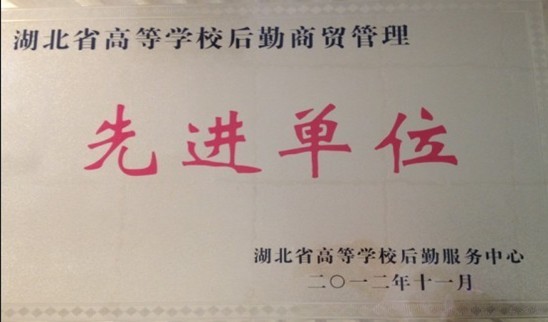 湖北省高等学校后勤商贸管理
先进单位
湖北省高等学校后勤服务中心
二〇一二年十一月